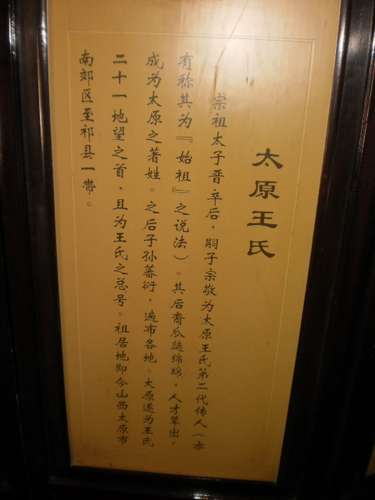 太原王氏
宗祖太子晋卒后，嗣子宗敬为太原王氏第二代传人（亦
有称其为『始祖』之说法）。其后裔瓜瓞绵绵，人才辈出，
成为太原之著姓。之后子孙蕃衍，遍布各地。太原遂为王氏
二十一地望之首，且为王氏之总号。祖居地即今山西太原市
南郊区至祁县一带。